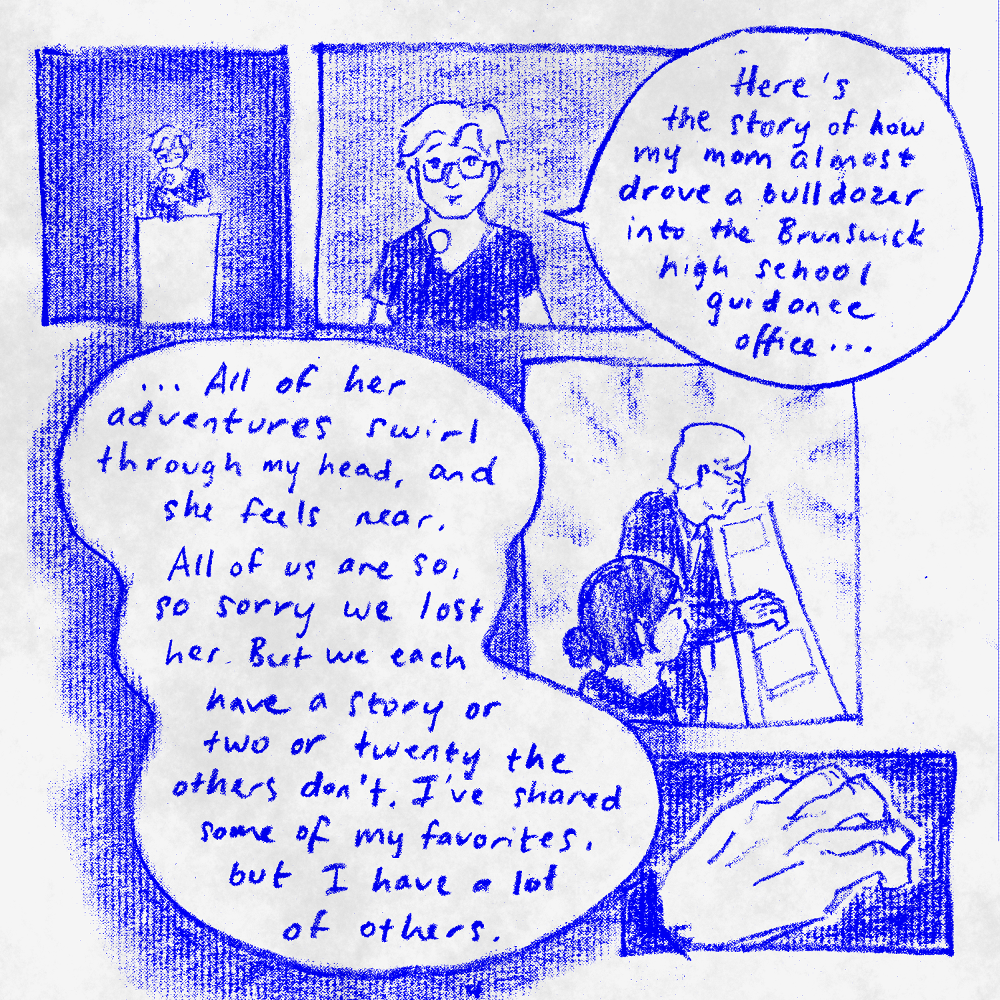 Here's
the story of how
my mom almost
drove a bulldozer
into the Brunswick
high school
guidance
office...
... All of her
adventures swirl
through my head, and
she feels near.
All of us are so,
so sorry we lost
her. But we each
have a story or
two or twenty the
others don't. I've shared
some of my favorites,
but I have a lot
of others.